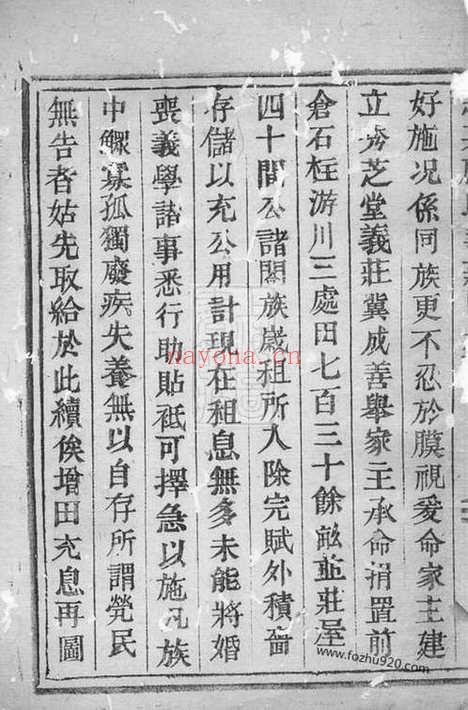 好施况係同族更不忍於膜視爰命家主建
立秀芝堂義莊冀成善舉家主承命捐置前
倉石枉游川三處田七百三十餘畝並莊屋
四十間公諸闔族歲租所入除完賦外積嗇
存儲以充公用計現在租息無多未能將婚
喪義學諸事悉行助貼祗可擇急以施凡族
中鰥寡孤獨廢疾失養無以自存所謂煢民
無告者姑先取給於此續俟增田充息再圖
nayona.cn
www.fozhu920.com